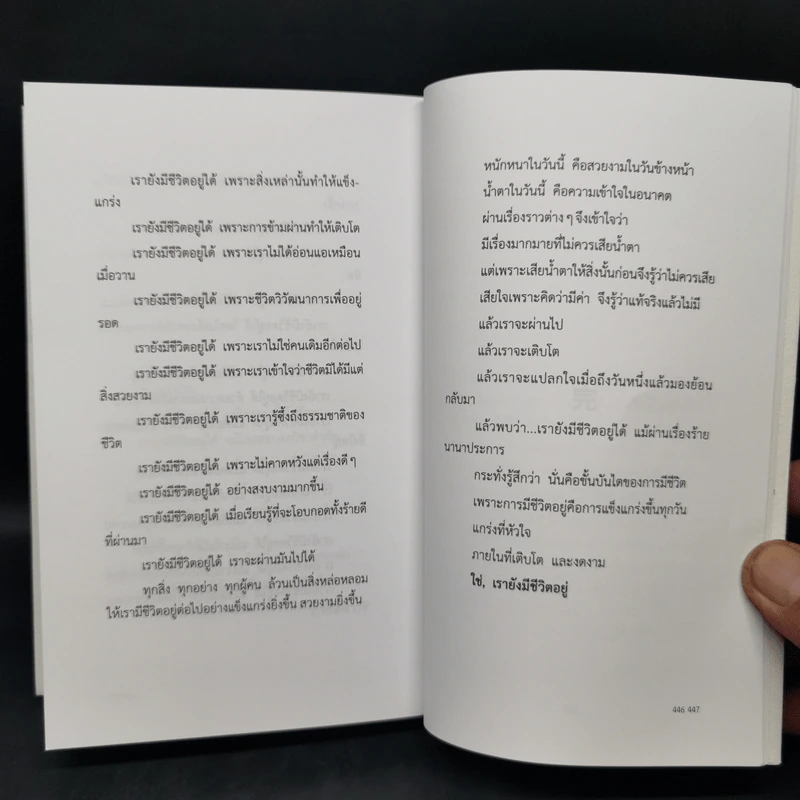 เรายังมีชีวิตอยู่ได้ เพราะสิ่งเหล่านั้นทำให้แข็ง-
แกร่ง
เรายังมีชีวิตอยู่ได้ เพราะการข้ามผ่านทำให้เติบโต
เรายังมีชีวิตอยู่ได้ เพราะเราไม่ได้อ่อนแอเหมือน
เมื่อวาน
เรายังมีชีวิตอยู่ได้ เพราะชีวิตวิวัฒนาการเพื่ออยู่
รอด
เรายังมีชีวิตอยู่ได้ เพราะเราไม่ใช่คนเดิมอีกต่อไป
เรายังมีชีวิตอยู่ได้ เพราะเราเข้าใจว่าชีวิตมิได้มีแต่
สิ่งสวยงาม
เรายังมีชีวิตอยู่ได้ เพราะเรารู้ซึ้งถึงธรรมชาติของ
ชีวิต
เรายังมีชีวิตอยู่ได้ เพราะไม่คาดหวังแต่เรื่องดี ๆ
เรายังมีชีวิตอยู่ได้ อย่างสงบงามมากขึ้น
เรายังมีชีวิตอยู่ได้ เมื่อเรียนรู้ที่จะโอบกอดทั้งร้ายดี
ที่ผ่านมา
เรายังมีชีวิตอยู่ได้ เราจะผ่านมันไปได้
ทุกสิ่ง ทุกอย่าง ทุกผู้คน ล้วนเป็นสิ่งหล่อหลอม
ให้เรามีชีวิตอยู่ต่อไปอย่างแข็งแกร่งยิ่งขึ้น สวยงามยิ่งขึ้น
หนักหนาในวันนี้ คือสวยงามในวันข้างหน้า
น้ำตาในวันนี้ คือความเข้าใจในอนาคต
ผ่านเรื่องราวต่าง ๆ จึงเข้าใจว่า
มีเรื่องมากมายที่ไม่ควรเสียน้ำตา
แต่เพราะเสียน้ำตาให้สิ่งนั้นก่อนจึงรู้ว่าไม่ควรเสีย
เสียใจเพราะคิดว่ามีค่า จึงรู้ว่าแท้จริงแล้วไม่มี
แล้วเราจะผ่านไป
แล้วเราจะเติบโต
แล้วเราจะแปลกใจเมื่อถึงวันหนึ่งแล้วมองย้อน
กลับมา
แล้วพบว่า...เรายังมีชีวิตอยู่ได้ แม้ผ่านเรื่องร้าย
นานาประการ
กระทั่งรู้สึกว่า นั่นคือขั้นบันไดของการมีชีวิต
เพราะการมีชีวิตอยู่คือการแข็งแกร่งขึ้นทุกวัน
แกร่งที่หัวใจ
ภายในที่เติบโต และงดงาม
ใช่, เรายังมีชีวิตอยู่
446 447